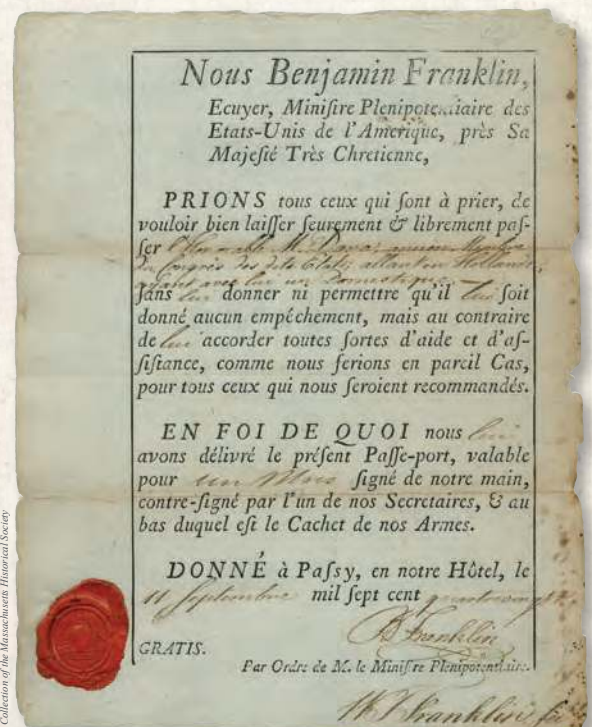 Nous Benjamin Franklin,
Ecuyer, Miniſtre Plenipotentiaire des
Etats-Unis de l'Amerique, près Sa
Majeſté Très Chretienne,
PRIONS tous ceux qui ſont à prier, de
vouloir bien laiſſer ſeurement & librement paſ-
ſer l'Honorable M. Dana, ancien Membre
du Congrès des dits Etats, allant en Hollande,
ayant avec lui un Domestique,
ſans lui donner ni permettre qu'il lui ſoit
donné aucun empéchement, mais au contraire
de lui accorder toutes ſortes d'aide et d'aſ-
ſiſtance, comme nous ferions en pareil Cas,
pour tous ceux qui nous ſeroient recommandés.
EN FOI DE QUOI nous lui
avons délivré le préſent Paſſe-port, valable
pour un Mois ſigné de notre main,
contre-ſigné par l'un de nos Secretaires, & au
bas duquel eſt le Cachet de nos Armes.
DONNÉ à Paſſy, en notre Hôtel, le
11 Septembre mil ſept cent
B Franklin
GRATIS.
Par Ordre de M. le Miniſtre Plenipotentiaire.
W. T. Franklin
Collection of the Massachusetts Historical Society